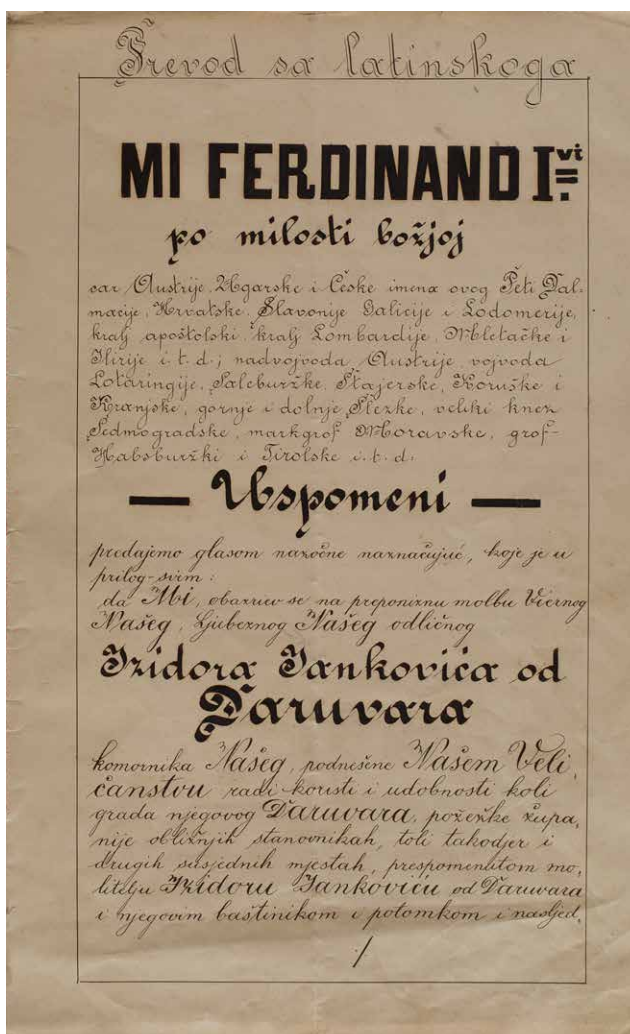 Prevod sa latinskoga
MI FERDINAND I.vi
po milosti božjoj
car Austrije, Ugarske i Česke imena ovog Peti Dal-
macije, Hrvatske, Slavonije Galicije i Lodomerije,
kralj apoštolski, kralj Lombardije, Mletačke i
Ilirije i.t.d; nadvojvoda Austrije, vojvoda
Lotaringije, Salcburžke, Štajerske, Koruške i
Kranjske, gornje i dolnje Slezke, veliki knez
Sedmogradske, markgrof Moravske, grof
Habsburžki i Tirolske i.t.d.
— Uspomeni —
predajemo glasom nazočne naznačujuć, koje je u
prilog svim:
da Mi, obazriev se na preponiznu molbu Viernog
Našeg, Ljubeznog Našeg odličnog
Izidora Jankovića od
Daruvara
komornika Našeg, podnešene Našem Veli,
čanstvu radi koristi i udobnosti koli
grada njegovog Daruvara, požežke župa,
nije obližnjih stanovnikah, toli takodjer i
drugih susjednih mjestah, prespomenutom mo,
litelju Izidoru Jankoviću od Daruvara
i njegovim baštinikom i potomkom i nasljed,
/